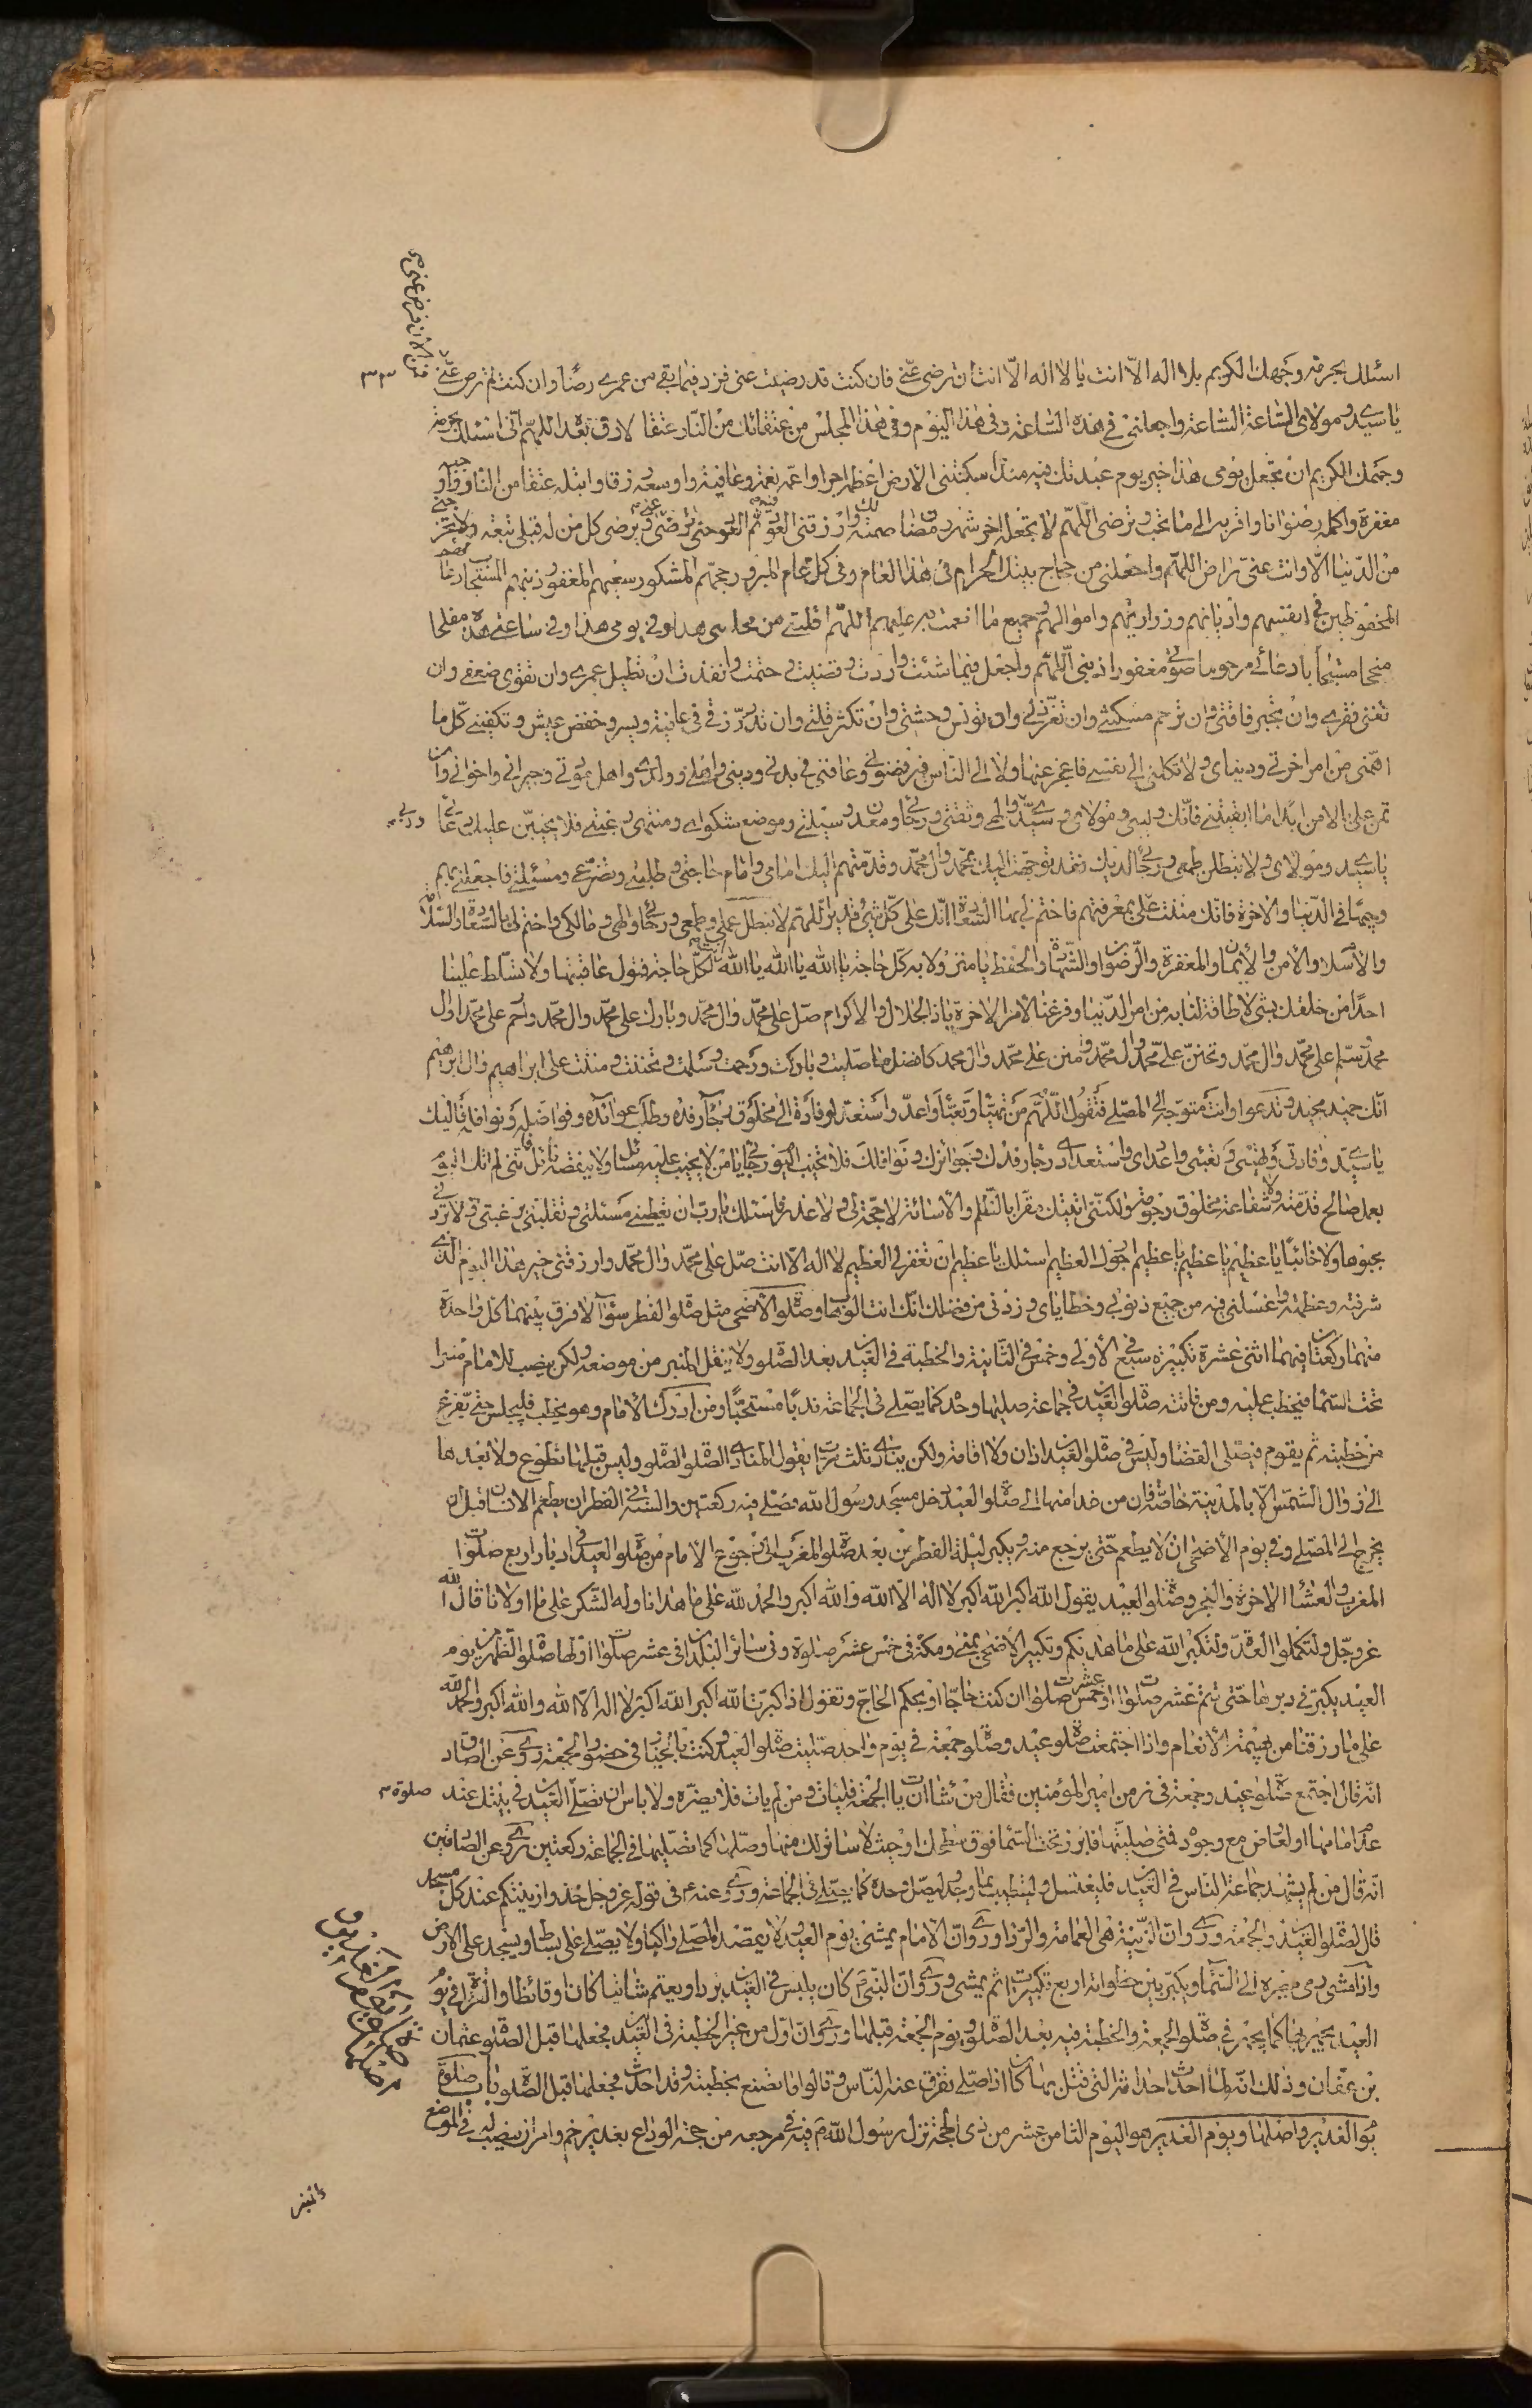 اسئلك بحرمة وجهك الكريم بلا اله الا انت يا لا اله الا انت ان ترضى عنى فان كنت قد رضيت عنى فزد فيما بقى من عمرى رضا وان كنت لم ترض عنى
يا سيدى ومولاى الساعة الساعة واجعلنى فى هذه الساعة وفى هذا اليوم وفى هذا المجلس من عتقائك من النار عتقا لا رق بعده اللهم انى اسئلك بحرمة
وجهك الكريم ان تجعل يومى هذا خير يوم عبدتك فيه منذ اسكنتنى الارض اعظم اجرا واعمه نعمة وعافية واوسعه رزقا وابتله عتقا من النار واوجبه
مغفرة واكمله رضوانا واقربه الى ما تحب وترضى اللهم لا تجعله اخر شهر رمضان صمته لك وارزقنى العود فيه ثم العود حتى ترضى عنى ويرضى كل من له قبلى تبعة ولا تخرجنى
من الدنيا الا وانت عنى راض اللهم واجعلنى من حجاج بيتك الحرام فى هذا العام وفى كل عام المبرور حجهم المشكور سعيهم المغفور ذنبهم المستجاب دعائهم
المحفوظين فى انفسهم واديانهم وذراريهم واموالهم وجميع ما انعمت به عليهم اللهم اقلبنى من مجلسى هذا وفى يومى هذا وفى ساعتى هذه مفلحا
منجحا مستجابا دعائى مرحوما صوتى مغفورا ذنبى اللهم واجعل فيما شئت واردت وقضيت وحتمت وانفذت ان تطيل عمرى وان تقوى ضعفى وان
تغنى فقرى وان تجبر فاقتى وان ترحم مسكنتى وان تعز ذلى وان تونس وحشتى وان تكثر قلتى وان تدر رزقى فى عافية ويسر وخفض عيش وتكفينى كل ما
اهمنى من امر اخرتى ودنياى ولا تكلنى الى نفسى فاعجز عنها ولا الى الناس فيرفضونى وعافنى فى بدنى ودينى واهلى وولدى واهل مودتى وجيرانى واخوانى وان
تمن على بالامن ابدا ما ابقيتنى فانك وليى ومولاى وسيدى والهى وثقتى ورجائى ومعدن وسيلتى وموضع شكواى ومنتهى رغبتى فلا يخيبن عليك دعائى
يا سيدى ومولاى ولا تبطلن طمعى ورجائى لديك فقد توجهت اليك بمحمد وال محمد وقدمتهم اليك امامى وامام حاجتى وطلبتى وتضرعى ومسئلتى فاجعلنى بهم
وجيها فى الدنيا والاخرة فانك مننت على بمعرفتهم فاختم لى بها السعادة انك على كل شئ قدير اللهم لا تبطل عملى وطمعى ورجائى والهى ومالكى واختم لى بالسعادة والسلامة
والاسلام والامن والايمان والمغفرة والرضوان والشهادة والحفظ يا منزولا به كل حاجة يا الله يا الله يا الله انت لكل حاجة فتول عاقبتها ولا تسلط علينا
احدا من خلقك بشئ لا طاقة لنا به من امر الدنيا وفرغنا لامر الاخرة يا ذا الجلال والاكرام صل على محمد وال محمد وبارك على محمد وال محمد وارحم على محمد وال
محمد وسلم على محمد وال محمد وتحنن على محمد وال محمد وامنن على محمد وال محمد كافضل ما صليت وباركت ورحمت وسلمت وتحننت ومننت على ابراهيم وال ابراهيم
انك حميد مجيد وتدعو وانت متوجه الى المصلى فتقول اللهم من تهيئا وتعبأ واعد واستعد لوفادة الى مخلوق رجاء رفده وطلب عوائده وفواضله ونوافله فاليك
يا سيدى وفادتى وتهيئى وتعبئى واعدادى واستعدادى رجاء رفدك وجوائزك ونوافلك فلا تخيب اليوم رجائى يا من لا يخيب عليه سائل ولا ينقصه نائل فانى لم اتك اليوم
بعمل صالح قدمته ولا شفاعة مخلوق رجوته ولكنى اتيتك مقرا بالظلم والاسائة لا حجة لى ولا عذر فاسئلك يا رب ان تعطينى مسئلتى وتقلبنى برغبتى ولا تردنى
مجبوها ولا خائبا يا عظيم يا عظيم يا عظيم ارجوك للعظيم اسئلك يا عظيم ان تغفر لى العظيم لا اله الا انت صل على محمد وال محمد وارزقنى خير هذا اليوم الذى
شرفته وعظمته واغسلنى فيه من جميع ذنوبى وخطاياى وزدنى من فضلك انك انت الوهاب وصلوة الاضحى مثل صلوة الفطر سواء لا فرق بينهما كل واحدة
منهما ركعتان فيهما اثنى عشرة تكبيرة سبع فى الاولى وخمس فى الثانية والخطبة فى العيدين بعد الصلوة ولا ينقل المنبر من موضعه ولكن ينصب للامام منبرا
تحت السماء فيخطب عليه ومن فاتته صلوة العيدين فى جماعة صليها وحده كما يصلى فى الجماعة ندبا مستحبا ومن ادرك الامام وهو يخطب فليجلس حتى يفرغ
من خطبته ثم يقوم فيصلى القضاء وليس فى صلوة العيدين اذان ولا اقامة ولكن ينادى ثلث مرات يقول المنادى الصلوة الصلوة وليس قبلها تطوع ولا بعدها
الى زوال الشمس الا بالمدينة خاصة فان من غدا منها الى صلوة العيد دخل مسجد رسول الله فصلى فيه ركعتين والسنة فى الفطر ان يطعم الانسان قبل ان
يخرج الى المصلى وفى يوم الاضحى ان لا يطعم حتى يرجع منه ويكبر ليلة الفطر من بعد صلوة المغرب الى رجوع الامام من صلوة العيد فى ادبار اربع صلوات
المغرب والعشاء الاخرة والفجر وصلوة العيد يقول الله اكبر الله اكبر لا اله الا الله والله اكبر والحمد لله على ما هدانا وله الشكر على ما اولانا قال الله
عز وجل ولتكملوا العدة ولتكبروا الله على ما هديكم وتكبير الاضحى بمنى ومكة فى خمس عشر صلوة وفى سائر البلدان فى عشر صلوات اولها صلوة الظهر من يوم
العيد يكبر فى دبرها حتى تتم عشر صلوات او خمس عشرة صلوات ان كنت حاجا او بحكم الحاج وتقول اذا كبرت الله اكبر الله اكبر لا اله الا الله والله اكبر والحمد لله
على ما رزقنا من بهيمة الانعام واذا اجتمعت صلوة عيد وصلوة جمعة فى يوم واحد صليت صلوة العيد وكنت بالخيار فى حضور الجمعة روى عن الصادق
انه قال اجتمع صلوة عيد وجمعة فى زمن امير المؤمنين فقال من شاء ان ياتى الجمعة فليات ومن لم يات فلا يضره ولا باس ان تصلى العيدين فى بيتك عند
عدم امامها او لعارض مع وجوده فمتى صليتها فابرز تحت السماء فوق سطحك او حيث لا ساتر لك منها وصلها كما تصليها فى الجماعة ركعتين روى عن الصادقين
انه قال من لم يشهد جماعة الناس فى العيدين فليغتسل وليتطيب بما وجد وليصل وحده كما يصلى فى الجماعة وروى وعنه فى قوله عز وجل خذوا زينتكم عند كل مسجد
قال لصلوة العيدين والجمعة وروى وان الزينة هى العمامة والرداء وروى وان الامام يمشى يوم العيد ولا يقصد المصلى راكبا ولا يصلى على بساط ويسجد على الارض
واذا مشى رمى ببصره الى السماء ويكبر بين خطواته اربع تكبيرات ثم يمشى وروى وان النبى كان يلبس فى العيدين بردا ويعتم شاتيا كان او قائظا
العيد يجهر بها كما يجهر فى صلوة الجمعة والخطبة فيه بعد الصلوة ويوم الجمعة قبلها وروى وان اول من غير الخطبة فى العيدين فجعلها قبل الصلوة عثمان
بن عفان وذلك انه لما احدث احداثه التى قتل بها كان اذا صلى تفرق عنه الناس وقالوا ما نصنع بخطبته وقد احدث فجعلها قبل الصلوة باب صلوة
يوم الغدير واصلها ويوم الغدير هو اليوم الثامن عشر من ذى الحجة نزل رسول الله فيه فى مرجعه من حجة الوداع بغدير خم وامر ان ينصب له فى الموضع